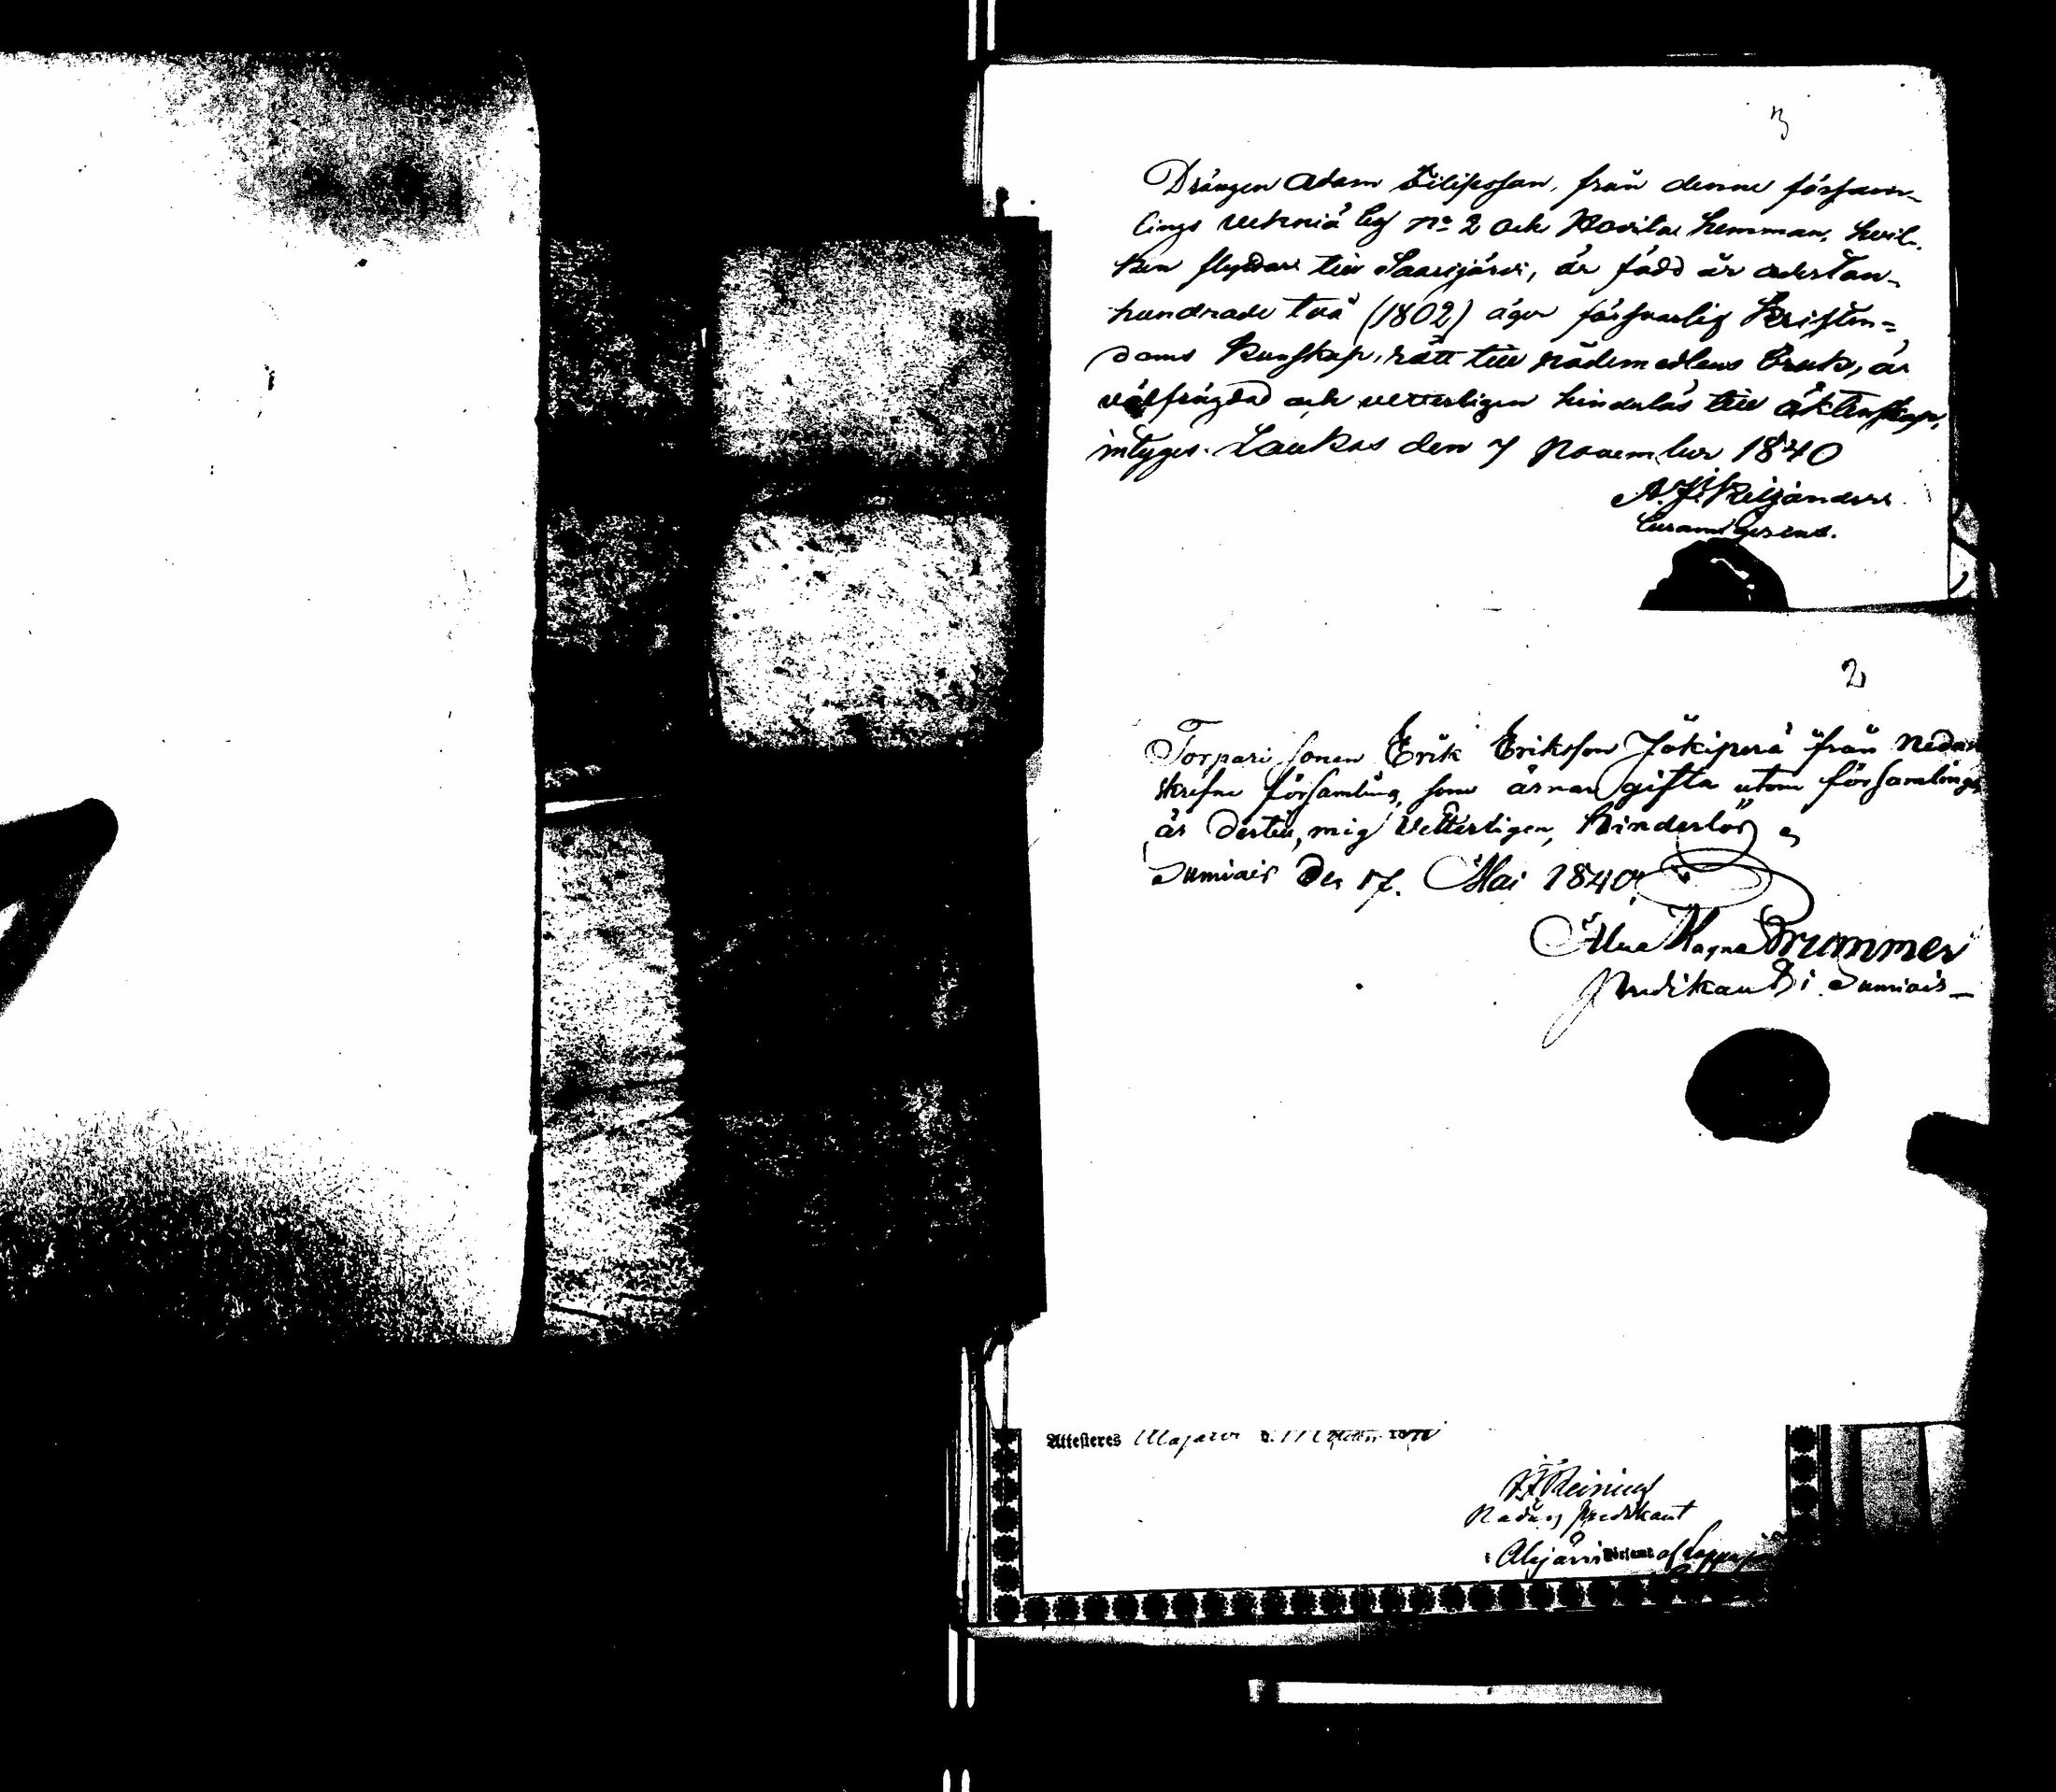 3
Drängen Adam Filipsson, från denne försam-
lings Vehniä by No 2 och Hovila hemman, hvil-
ken flyttar till Saarijärvi, är född år adertan-
hundrade två (1802) äger försvarlig Kristen=
doms Kunskap, rätt till nådemedlens bruk, är
välfrägdad och vetterligen hinderlös till äktenskap,
intyges. Laukas den 7 November 1840
A. F. Kiljander
Curam Gerens.
2
Torpari sonen Erik Eriksson Jokiperä från nedan
skrefne församling, som ärnar gifta utom församlingen
är dertill, mig Vetterligen, Hinderlös
Sumiais den 17. Mai 1840.
Magna Brummer
Predikant i Sumiais
Attesteres Alajärvi d.
Reinius
Nådårs predikant
i Alajärvi Församl. af Lappajärvi